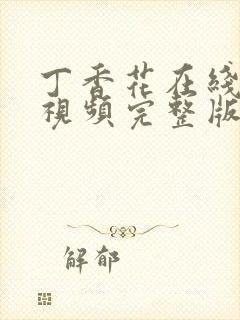 丁香花在綫
視頻完整版
解郁